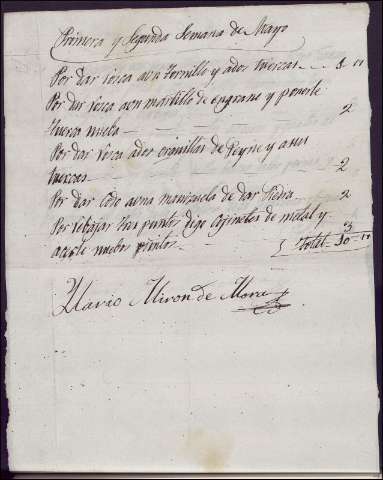 Primera y Segunda Semana de Mayo
Por dar rosca a un tornillo y a dos tuercas 3 11
Por dar rosca a un martillo de engrane y ponerle
tuerca nueba 2
Por dar rosca a dos orquillas de Peyne y a sus
tuercas 2
Por dar codo a una manizuela de dar Piedra 2
Por rebajar tres puntos digo Cojinetes de metal y
acerle nuebos puntos 3
Total 10 11
Ylario Miron de Mora